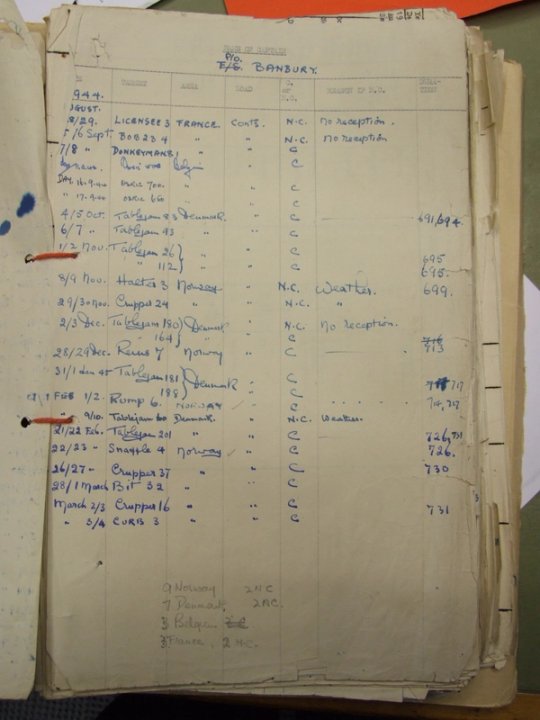 F/O.
F/S. BANBURY.
TARGET AREA LOAD C. OR N.C. REASON IF N.C.
944.
8/29. LICENSEE 3 FRANCE. Conts. N.C. No reception.
5/6 Sept. BOB 234 " " N.C. No reception
7/8 " DONKEYMAN 1 " " C
" C
DAY. 16.9.44 OSRIC 700. " C
" 17.9.44 OSRIC " C
4/5 Oct. Tablejam 83 Denmark. " C — 691/694
6/7 " Tablejam 43 " " C
1/2 Nov. Tablejam 26 } " " C 695
" 112 } " C 695.
8/9 Nov. Haeter 3 Norway " N.C. Weather. 699.
29/30 Nov. Crupper 24 " " N.C. "
2/3 Dec. Tablejam 180 } Denmark " N.C. No reception.
" 164 } " " C
28/29 Dec. Remus 7 Norway " C — 713
31/1 Jan 45 Tablejam 181 } Denmark " C 717
188 } " C
FEB 1/2. Rump 6. NORWAY " C 714, 717
" 9/10. Tablejam 60 Denmark. " N.C. Weather.
21/22 Feb. Tablejam 201 " " C 726, 731
22/23 " Snaffle 4 Norway " C 726.
26/27 " Crupper 37 " " C 730
28/1 March Bit 32 " " C
March 2/3 Crupper 16 " " C 731
" 3/4 CURB 3 " " C
9 Norway 2 NC
7 Denmark, 2 NC.
3 Belgium
3 France, 2 N.C.